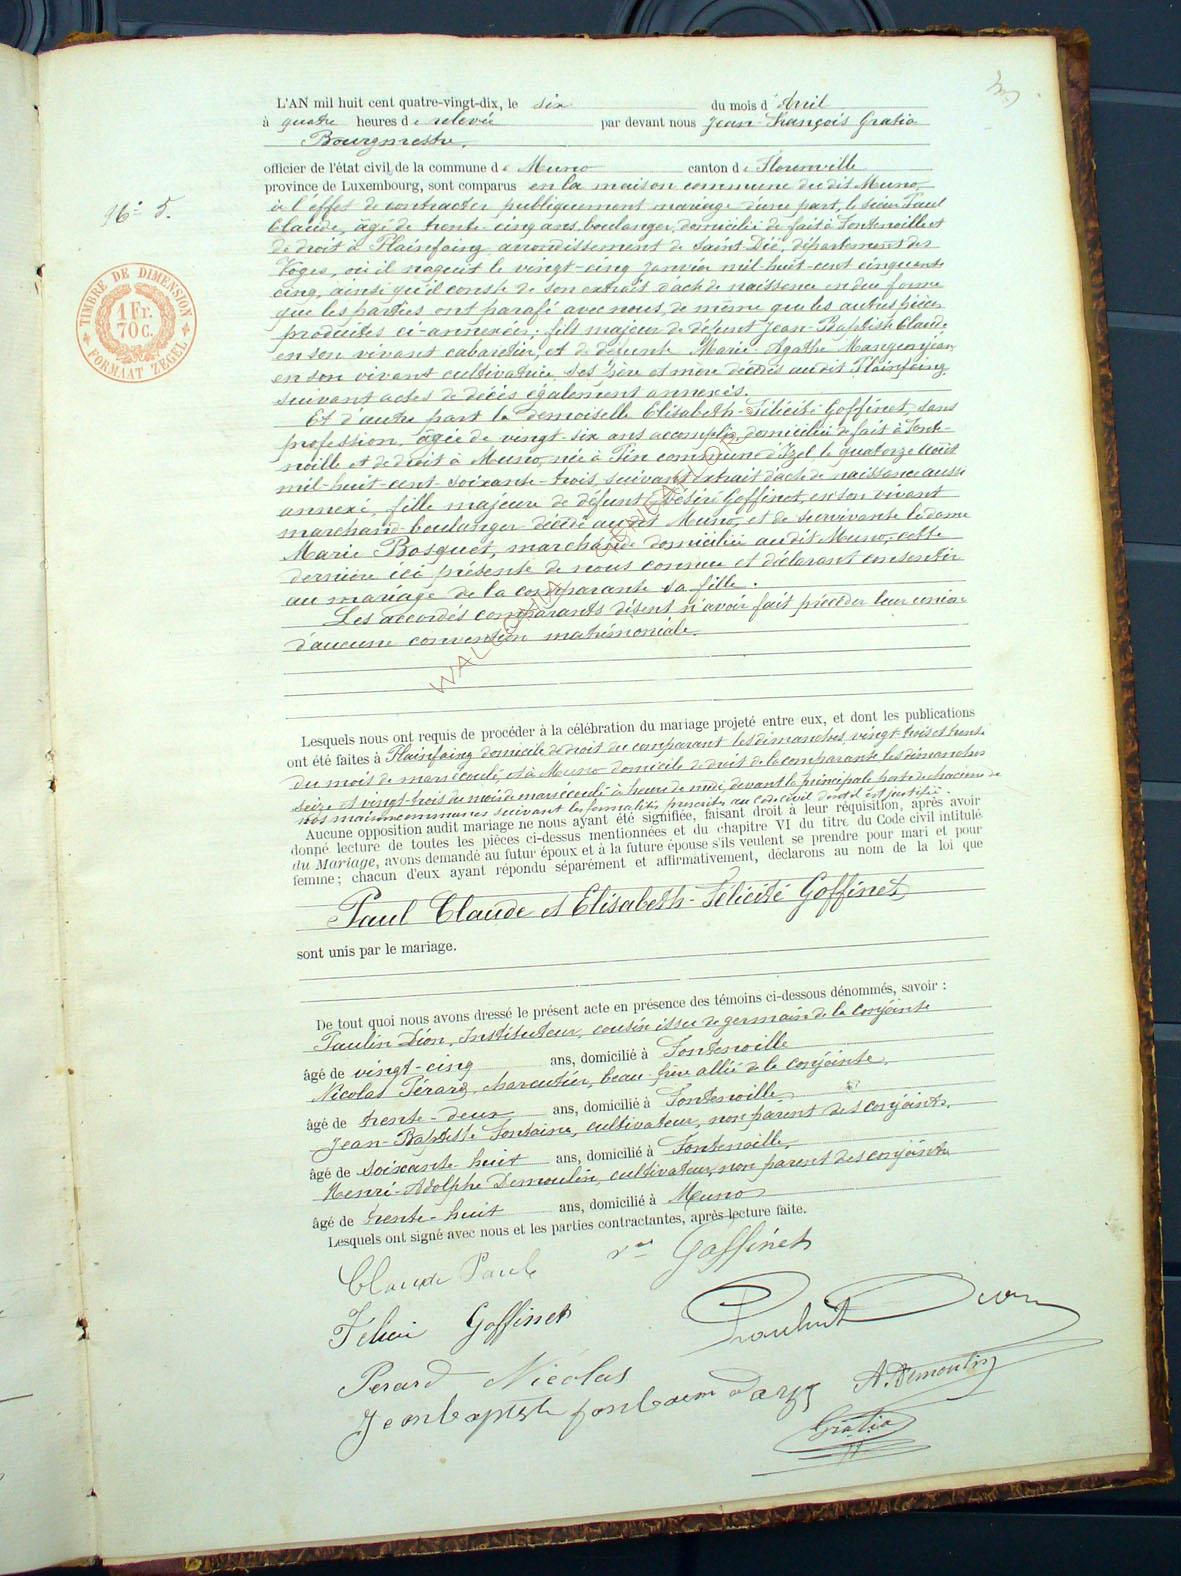 L'AN mil huit cent quatre-vingt-dix, le six du mois d'Avril
à quatre heures de relevée par devant nous Jean-François Gratia
Bourgmestre,
officier de l'état civil de la commune de Muno canton de Florenville
province de Luxembourg, sont comparus en la maison commune du dit Muno,
à l'effet de contracter publiquement mariage d'une part, le sieur Paul
Claude, âgé de trente-cinq ans, boulanger, domicilié de fait à Fontenoille et
de droit à Plainfaing, arrondissement de Saint-Dié, département des
Vosges, où il naquit le vingt-cinq Janvier mil-huit-cent cinquante
cinq, ainsi qu'il conste de son extrait d'acte de naissance en due forme
que les parties ont parafé avec nous, de même que les autres pièces
produites ci-annexées; fils majeur de défunt Jean-Baptiste Claude
en son vivant cabaretier, et de défunte Marie-Agathe
en son vivant cultivatrice ses père et mère décédés au dit Plainfaing
suivant actes de décès également annexés.
Et d'autre part la demoiselle Elisabeth-Félicité Goffinet, sans
profession, âgée de vingt-six ans accomplis, domiciliée de fait à Fonte-
noille et de droit à Muno, née à Pin commune d'Izel le quatorze Août
mil-huit-cent-soixante-trois, suivant extrait d'acte de naissance aussi
annexé, fille majeure de défunt Désiré Goffinet, en son vivant
marchand-boulanger décédé au dit Muno, et de survivante la dame
Marie Bosquet, marchande domiciliée au dit Muno, cette
dernière ici présente de nous connue et déclarant consentir
au mariage de la comparante sa fille.
Les accordés comparants disent n'avoir fait précéder leur union
d'aucune convention matrimoniale.
Lesquels nous ont requis de procéder à la célébration du mariage projeté entre eux, et dont les publications
ont été faites à Plainfaing domicile de droit du comparant les dimanches vingt-trois et trente
du mois de mars écoulé, et à Muno domicile de droit de la comparante les dimanches
seize et vingt-trois du mois de mars écoulé à heure de midi, devant la principale porte de chacune de
nos maisons communes suivant les formalités prescrites au Code civil dont il est justifié.
Aucune opposition audit mariage ne nous ayant été signifiée, faisant droit à leur réquisition, après avoir
donné lecture de toutes les pièces ci-dessus mentionnées et du chapitre VI du titre du Code civil intitulé
du Mariage, avons demandé au futur époux et à la future épouse s'ils veulent se prendre pour mari et pour
femme; chacun d'eux ayant répondu séparément et affirmativement, déclarons au nom de la loi que
Paul Claude et Elisabeth-Félicité Goffinet,
sont unis par le mariage.
De tout quoi nous avons dressé le présent acte en présence des témoins ci-dessous dénommés, savoir :
Paulin Dion, Instituteur, cousin issu de germain de la conjointe
âgé de vingt-cinq ans, domicilié à Fontenoille
Nicolas Pérard, charcutier, beau-frère allié de la conjointe,
âgé de trente-deux ans, domicilié à Fontenoille
Jean-Baptiste Fontaine, cultivateur, non parent des conjoints,
âgé de soixante huit ans, domicilié à Fontenoille,
Henri-Adolphe Demoulin, cultivateur, non parent des conjoints
âgé de trente-huit ans, domicilié à Muno
Lesquels ont signé avec nous et les parties contractantes, après lecture faite.
Claude Paul Vve Goffinet
Félicie Goffinet
Perard Nicolas A. Demoulin
Jeanbaptiste
Gratia
N° 5.
TIMBRE DE DIMENSION
1 Fr.
70 c.
FORMAAT ZEGEL